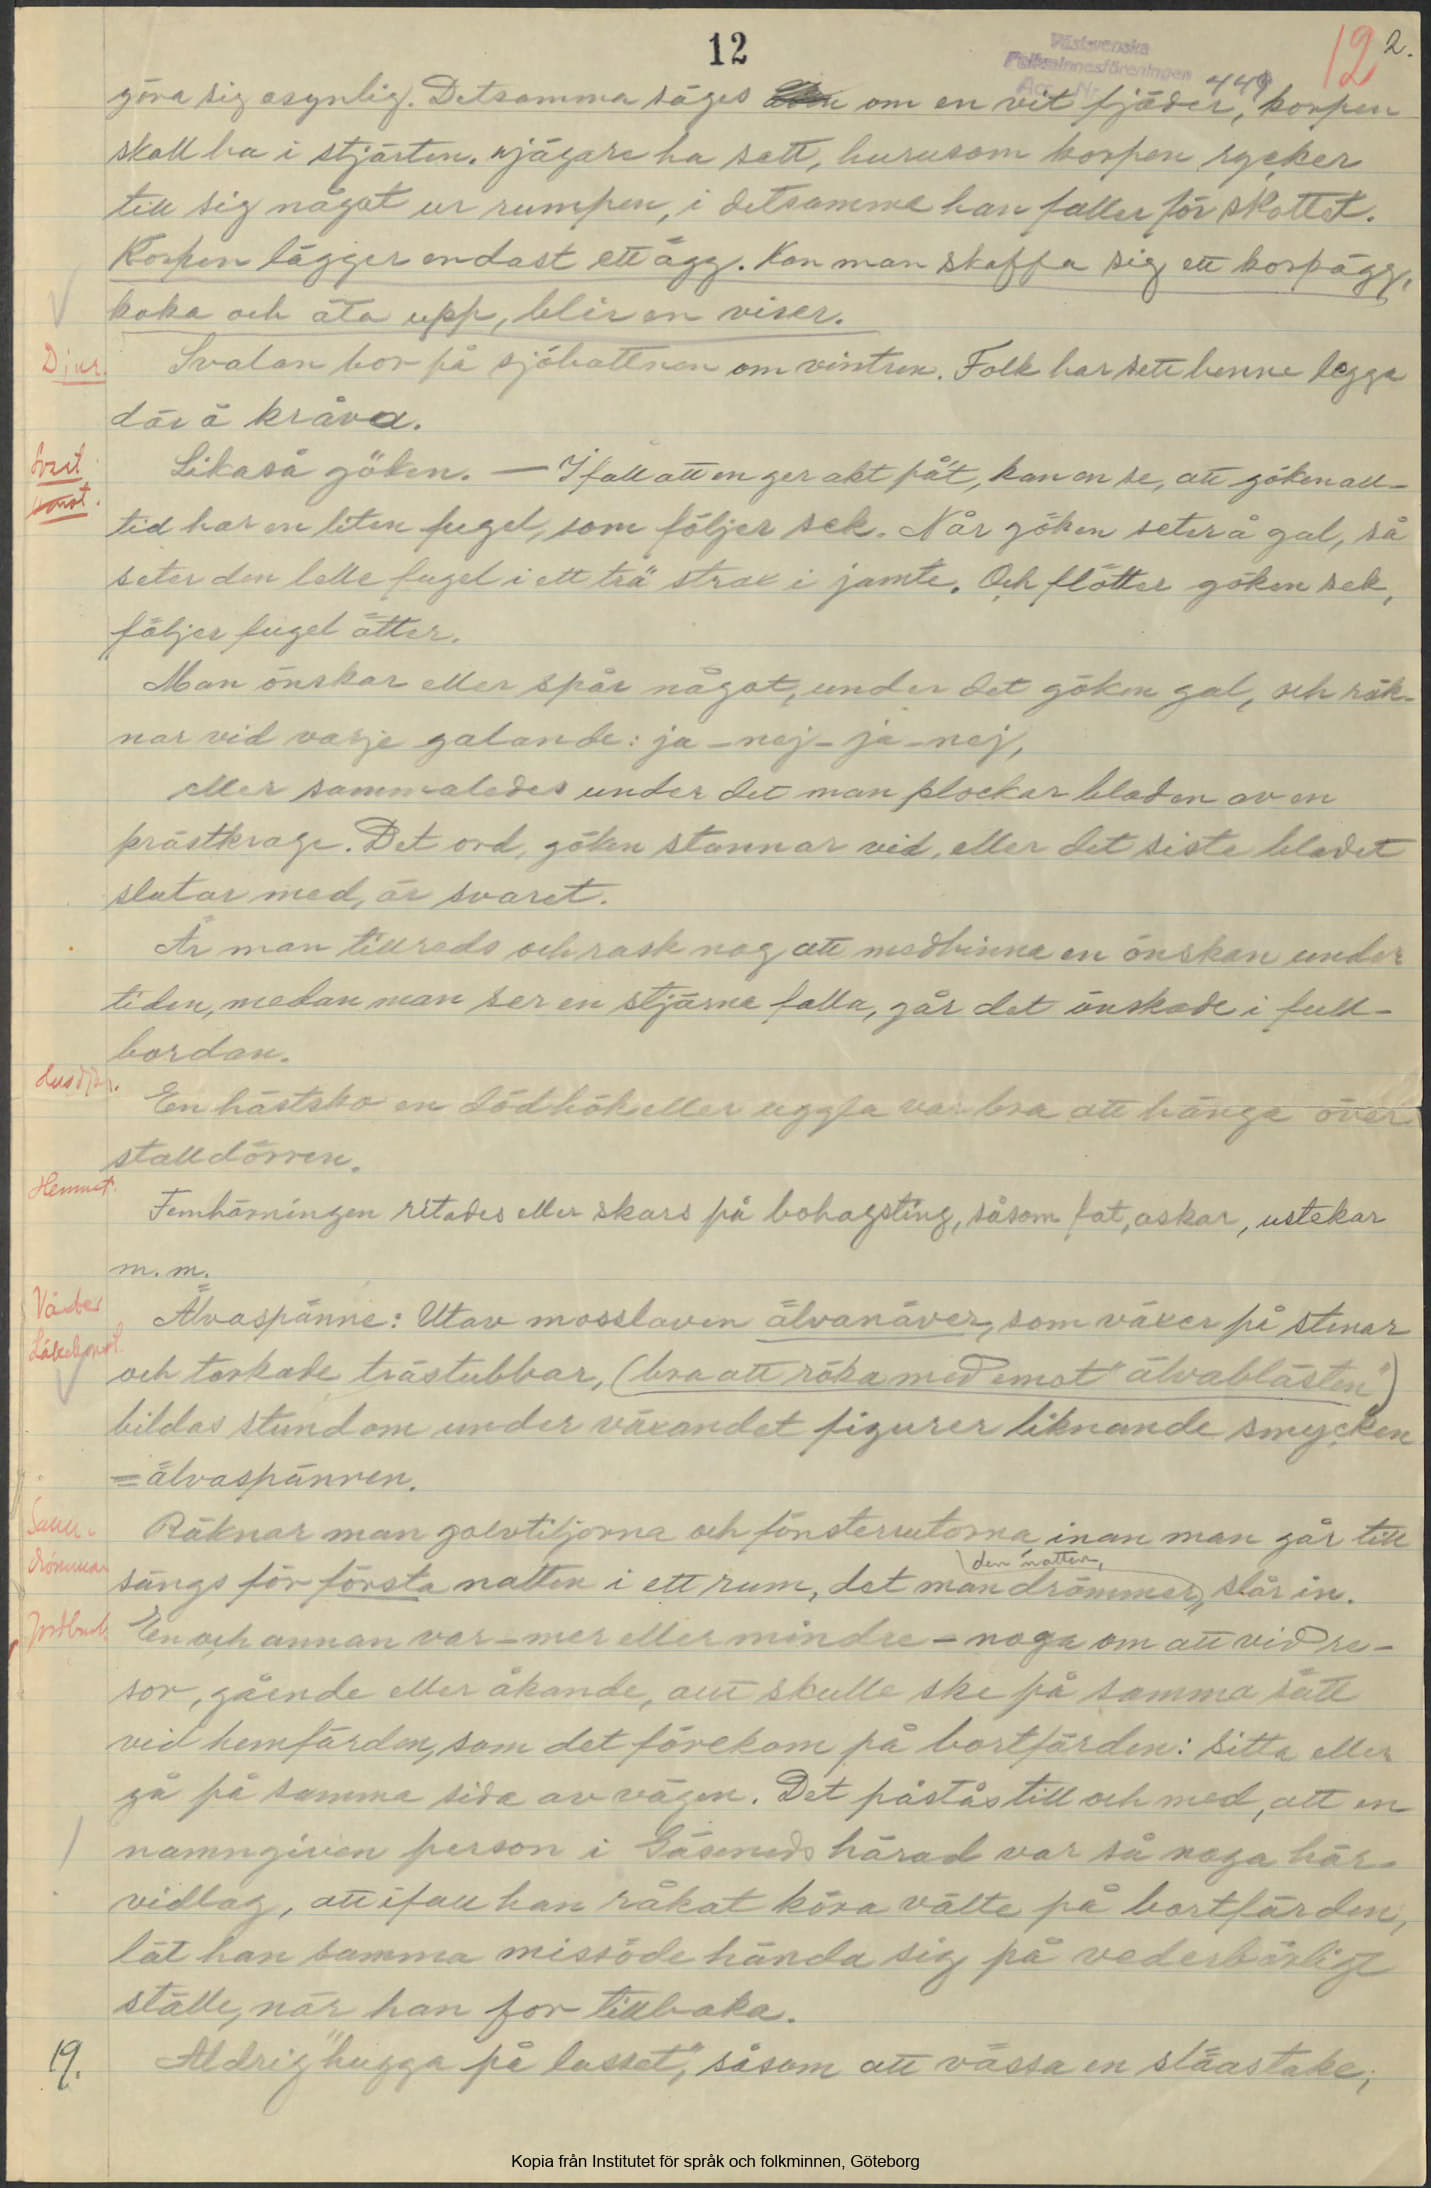 12
Västsvenska
Folkminnesföreningen
449
12 2.
göra sig osynlig. Detsamma säges om en vit fjäder, korpen
skall ha i stjärten. Jägare ha sett, hurusom korpen rycker
till sig något ur rumpen, i detsamma han faller för skottet.
Korpen lägger endast ett ägg. Kan man skaffa sig ett korpägg,
koka och äta upp, blir en viser.
Djur. Svalan bor på sjöbottnen om vintren. Folk har sett henne legga
där å kråva.
Likaså göken. — Ifall att en ger akt på't, kan en se, att göken all-
tid har en liten fugel, som följer sek. Når göken seter å gal, så
seter den lelle fugel i ett trä strax i jamte. Och flötter göken sek,
följer fugel ätter.
Man önskar eller spår något, under det göken gal, och räk-
nar vid varje galande: ja – nej – ja – nej,
eller sammaledes under det man plockar bladen av en
prästkrage. Det ord, göken stannar vid, eller det siste bladet
slutar med, är svaret.
Är man tillreds och rask nog att medhinna en önskan under
tiden, medan man ser en stjärna falla, går det önskade i full-
bordan.
Husdjur. En hästsko en död hök eller uggla var bra att hänga över
stalldörren.
Hemmet. Femhörningen ritades eller skars på bohagsting, såsom fat, askar, ostekar
m. m.
Väder Älvaspänne: Utav mosslaven älvanäver, som växer på stenar
och torkade trästubbar, (bra att röka med emot "älvablåsten")
bildas stundom under växandet figurer liknande smycken
= älvaspännen.
Räknar man golvtiljorna och fönsterrutorna innan man går till
den natten,
sängs för första natten i ett rum, det man drömmer, slår in.
En och annan var – mer eller mindre – noga om att vid re-
sor, gående eller åkande, allt skulle ske på samma sätt
vid hemfärden, som det förekom på bortfärden: sitta eller
gå på samma sida av vägen. Det påstås till och med, att en
namngiven person i Gäseneds härad var så noga här-
vidlag, att ifall han råkat köra välte på bortfärden,
lät han samma missöde hända sig på vederbörlige
ställe, när han for tillbaka.
19. Aldrig "hugga på lasset", såsom att vässa en släastake,
Kopia från Institutet för språk och folkminnen, Göteborg